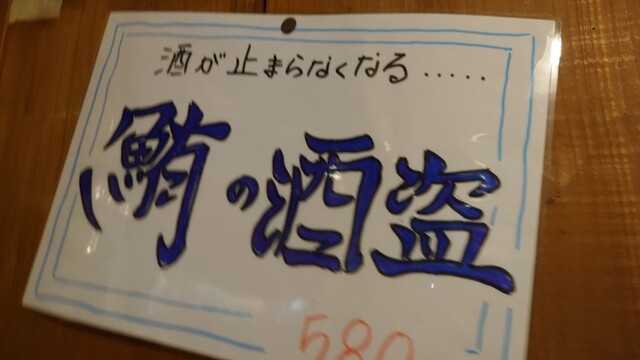 酒が止まらなくなる.....
鮪の酒盗
580